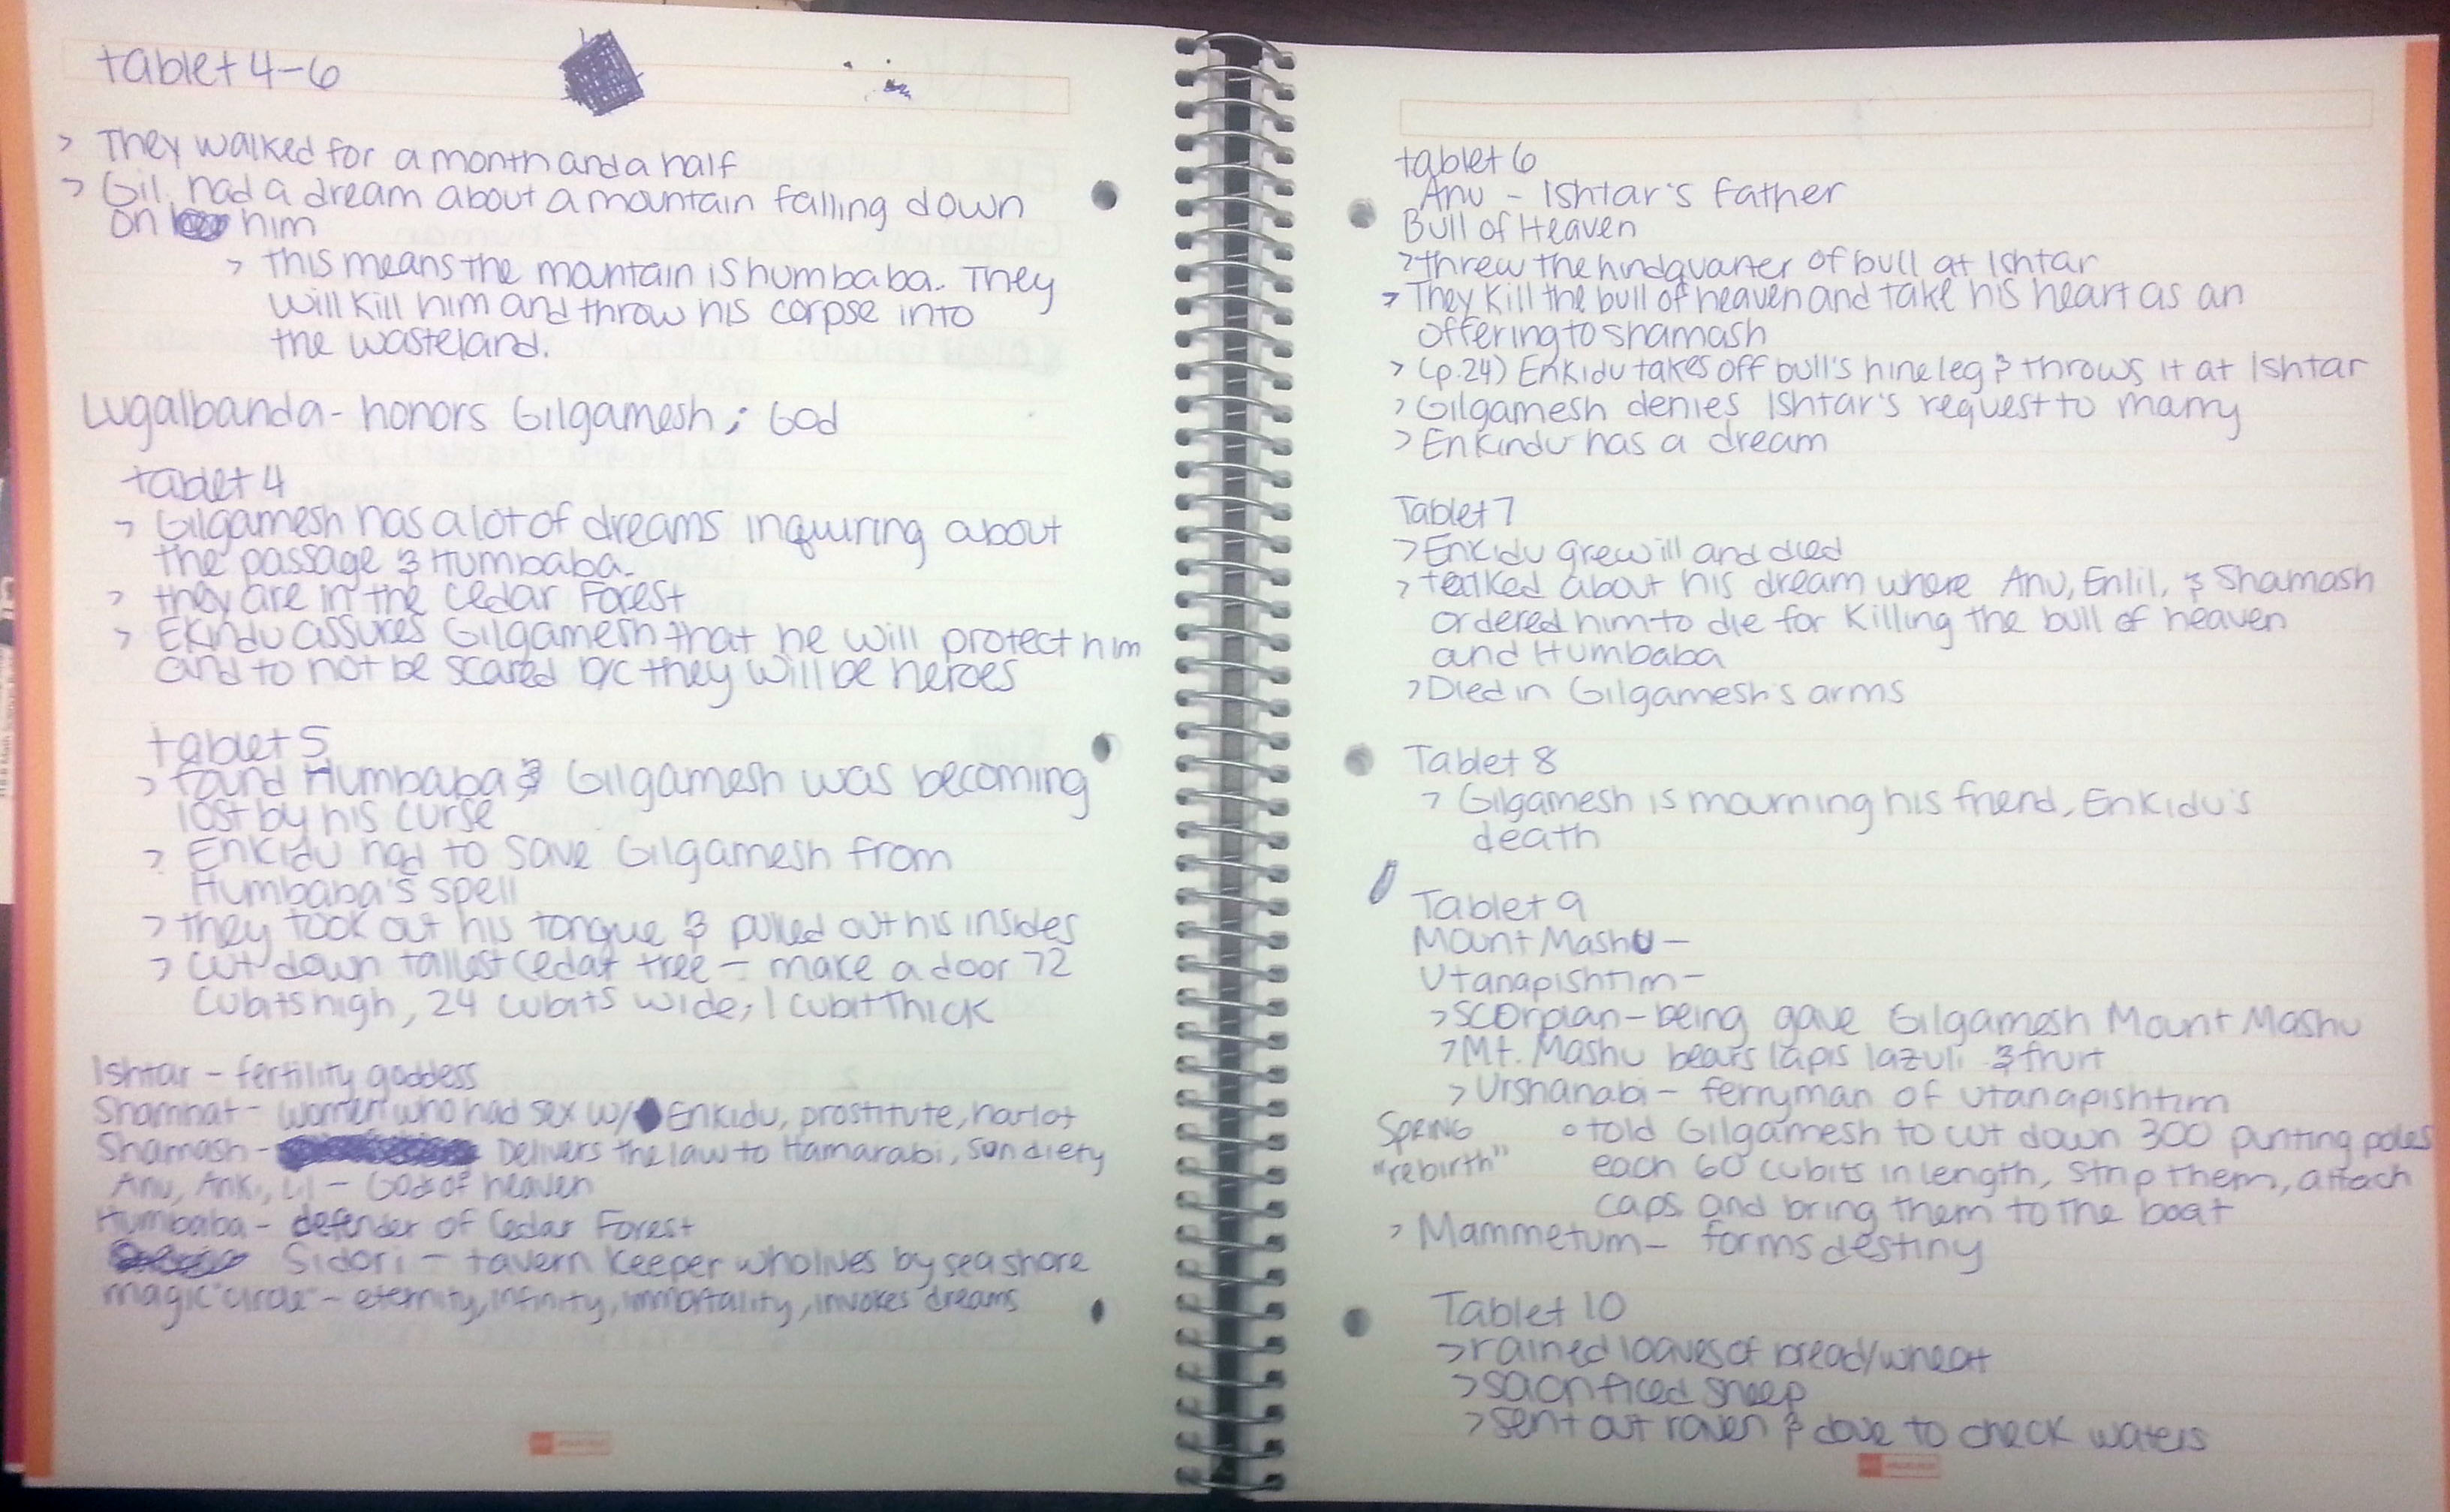 tablet 4-6
> They walked for a month and a half
> Gil. had a dream about a mountain falling down
on him
> this means the mountain is humbaba. They
will kill him and throw his corpse into
the wasteland.
Lugalbanda - honors Gilgamesh; God
tablet 4
> Gilgamesh has a lot of dreams inquiring about
the passage & Humbaba.
> they are in the Cedar Forest
> Ekindu assures Gilgamesh that he will protect him
and to not be scared b/c they will be heroes
tablet 5
> found Humbaba & Gilgamesh was becoming
lost by his curse
> Enkidu had to save Gilgamesh from
Humbaba's spell
> they took out his tongue & pulled out his insides
> cut down tallest cedar tree - make a door 72
cubits high, 24 cubits wide, 1 cubit thick
Ishtar - fertility goddess
Shamhat - women who had sex w/ Enkidu, prostitute, harlot
Shamash - Delivers the law to Hamarabi, sun diety
Anu, Anki, - Gods of heaven
Humbaba - defender of Cedar Forest
Sidori - tavern keeper who lives by sea shore
magic "circle" - eternity, infinity, immortality, invokes dreams
tablet 6
Anu - Ishtar's father
Bull of Heaven
> threw the hindquarter of bull at Ishtar
> They kill the bull of heaven and take his heart as an
offering to shamash
> (p.24) Enkidu takes off bull's hine leg & throws it at Ishtar
> Gilgamesh denies Ishtar's request to marry
> Enkindu has a dream
Tablet 7
> Enkidu grew ill and died
> talked about his dream where Anu, Enlil, & Shamash
ordered him to die for killing the bull of heaven
and Humbaba
> Died in Gilgamesh's arms
Tablet 8
> Gilgamesh is mourning his friend, Enkidu's
death
Tablet 9
Mount Mashu -
Utanapishtim -
> scorpian-being gave Gilgamesh Mount Mashu
> Mt. Mashu bears lapis lazuli & fruit
> Urshanabi - ferryman of Utanapishtim
SPRING
"rebirth"
° told Gilgamesh to cut down 300 punting poles
each 60 cubits in length, strip them, attach
caps and bring them to the boat
> Mammetum - forms destiny
Tablet 10
> rained loaves of bread/wheat
> sacrificed sheep
> sent out raven & dove to check waters